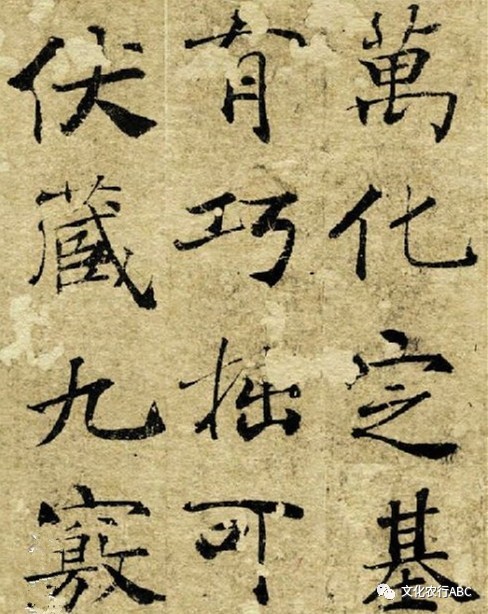 萬化定基
有巧拙可
伏藏九竅
文化农行ABC